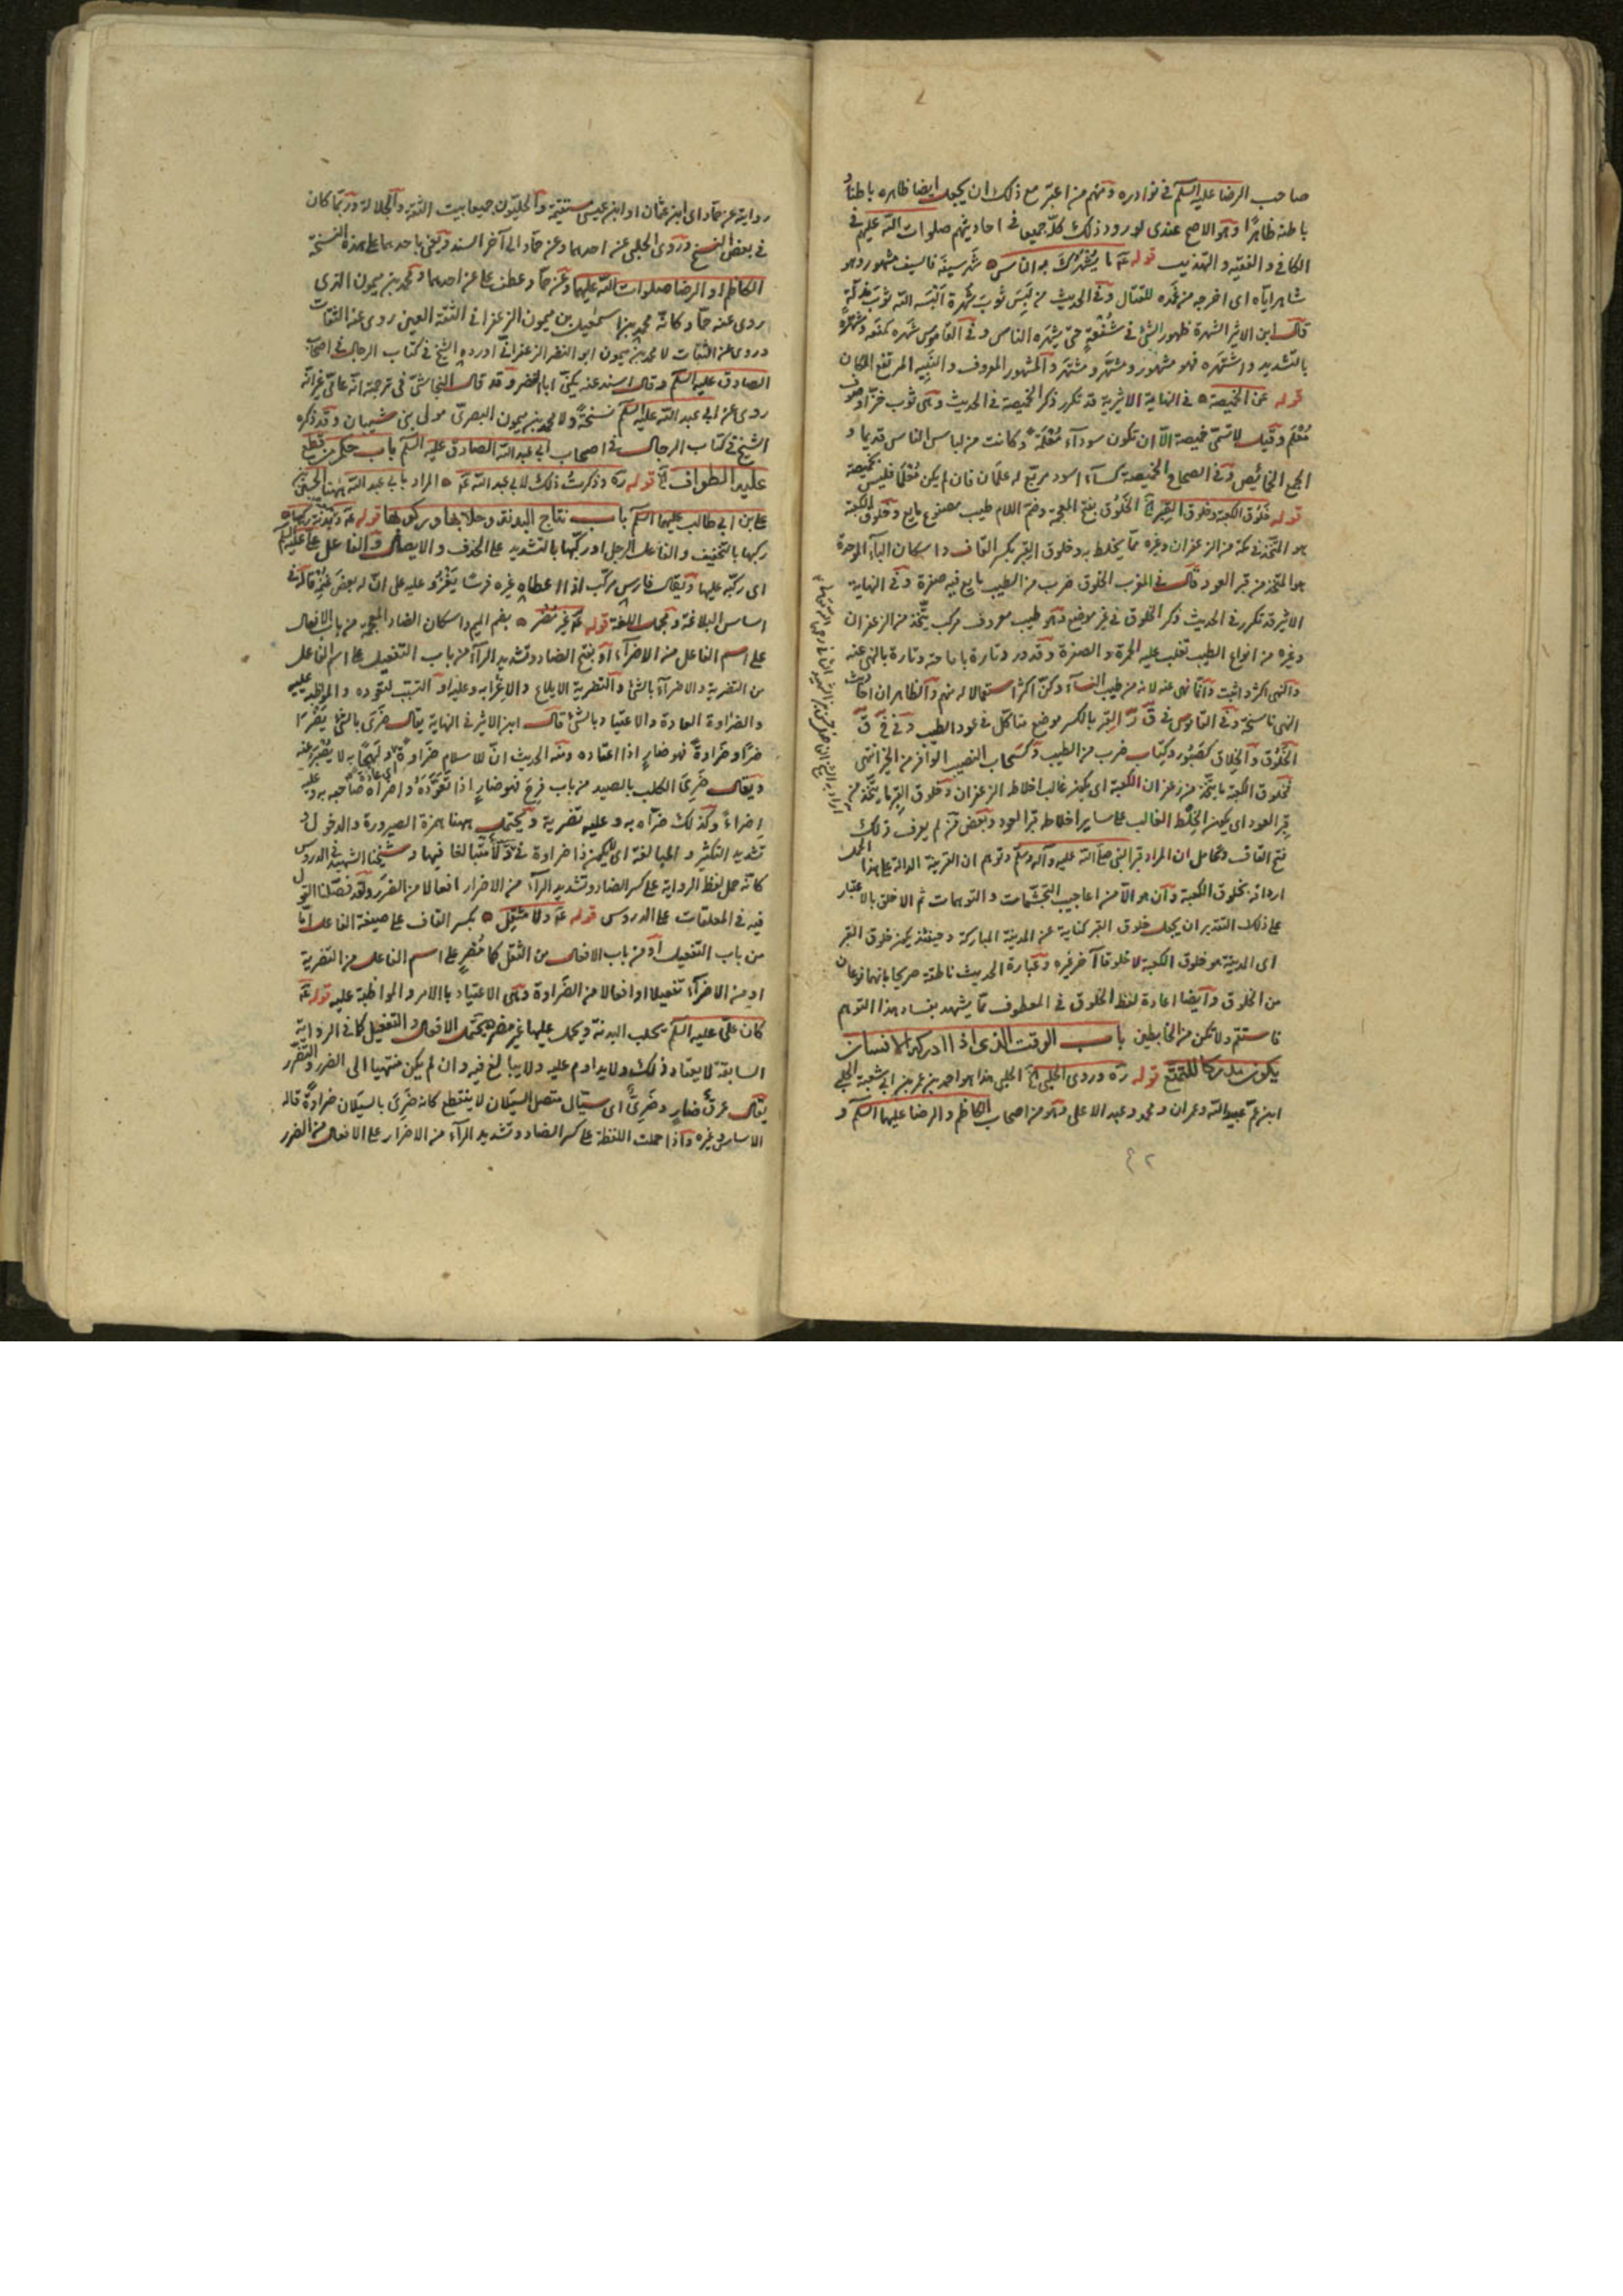 صاحب الرضا عليه السلم في نوادره ومنهم من اعتبر مع ذلك ان يجعل ايضا ظاهره باطنا و
باطنه ظاهرًا وهو الاصح عندى لورود ذلك كله جميعا في احاديثهم صلوات الله عليهم في
الكافي والفقيه والتهذيب قوله عَ ما يشهرك به الناس ه شهر سيفه فالسيف مشهور وهو
شاهر اياه اى اخرجه من غمده للقتال وفي الحديث من لبس ثوب شهرة البسه الله ثوب مذلة
قال ابن الاثير الشهرة ظهور الشئ في شنعة حتى يشهره الناس وفي القاموس شهره كمنعه وشهّره
بالتشديد واشتهره فهو مشهور ومشهّر ومشتهر والمشهور المعروف والنبيه المرتفع المكان
قوله عن الخميصة ه في النهاية الاثيرية قد تكرر ذكر الخميصة في الحديث وهى ثوب خز او صوف
مُعْلَم وقيل لا تسمى خميصة الا ان تكون سودآء مُعْلَمَة وكانت من لباس الناس قديما و
الجمع الخمائص وفي الصحاح الخميصة كسآء اسود مربع له علمان فان لم يكن مُعْلَمًا فليس بخميصة
قوله خلوق الكعبة وخلوق القبر الخ الخَلُوق بفتح المعجمة وضم اللام طيب مصنوع مايع وخلوق الكعبة
هو المتخذ في مكة من الزعفران وغيره مما يخلط به وخلوق القبر بكسر القاف واسكان البآء الموحدة
هو المتخذ من قبر العود قال في المغرب الخلوق ضرب من الطيب مايع فيه صفرة وفي النهاية
الاثيرية قد تكرر في الحديث ذكر الخلوق في غير موضع وهو طيب معروف مركب يتّخذ من الزعفران
وغيره من انواع الطيب تغلب عليه الحمرة والصفرة وقد ورد تارة باباحته وتارة بالنهى عنه
والنهى اكثر واثبت وانما نهى عنه لانه من طيب النسآء وكنّ اكثر استعمالا له منهم والظاهر ان احاديث
النهى ناسخة وفي القاموس في ق ر القبر بالكسر موضع متاكل في عود الطيب وفي خ ق
الخَلُوق والخِلاق كصَبُور وكتاب ضرب من الطيب وكسحاب النصيب الوافر من الخير انتهى
فخلوق الكعبة ما يتّخذ من زعفران الكعبة اى يكون غالب اخلاطه الزعفران وخلوق القبر ما يتّخذ من
قبر العود اى يكون الخلط الغالب على ساير اخلاطه قبر العود وبعض من لم يعرف ذلك
فتح القاف وتحامل ان المراد قبر النبى صلى الله عليه وآله وسلم وتوهم ان القرينة الدالة على هذا الحمل
اردافه بخلوق الكعبة وان هو الا من اعاجيب التجشّمات والتوهمات ثم الاخلق بالاعتبار
على ذلك التقدير ان يجعل خلوق القبر كناية عن المدينة المباركة وحينئذ يكون خلوق القبر
اى المدينة هو خلوق الكعبة لا خلوقا آخر غيره وعبارة الحديث ناطقة صريحا بانهما نوعان
من الخلوق وايضا اعادة لفظ الخلوق في المعطوف مما يشهد بفساد هذا التوهم
فاستقم ولا تكن من الخابطين باب الوقت الذى اذا ادركه الانسان
يكون مدركا للتمتع قوله ره وروى الحلبى الخ الحلبى هذا هو احمد بن عمر بن ابى شعبة الحلبى
ابن عم عبيد الله وعمران ومحمد وعبد الاعلى وهو من اصحاب الكاظم والرضا عليهما السلم و
٤٢
رواية عن حماد اى ابن عثمان او ابن عيسى مستقيمة والحلبيون جميعا بيت الثقة والجلالة وربما كان
في بعض النسخ وروى الحلبى عن احدهما وعن حماد الى آخر السند ويعنى باحدهما على هذه النسخة
الكاظم او الرضا صلوات الله عليهما وعن حماد عطف على عن احدهما ومحمد بن ميمون الذى
روى عنه حماد كانه محمد بن اسمعيل بن ميمون الزعفرانى الثقة العين روى عنه الثقات
وروى عن الثقات لا محمد بن ميمون ابو النضر الزعفرانى اورده الشيخ في كتاب الرجال في اصحاب
الصادق عليه السلم وقال اسند عنه يكنّى ابا النضر وقد قال النجاشى في ترجمة انه عامّى غير انّه
روى عن ابى عبد الله عليه السلم نسخة ولا محمد بن ميمون البصرى مولى بنى شيبان وقد ذكره
الشيخ في كتاب الرجال في اصحاب ابى عبد الله الصادق عليه السلم باب حكم من قطع
عليه الطواف الخ قوله ره وذكرت ذلك لابى عبد الله عَ ه المراد بابى عبد الله ههنا الحسين
على بن ابى طالب عليهما السلم باب نتاج البدنة وحلابها وركوبها قوله عَ
ركبها بالتخفيف والفاعل الرجل او ركّبها بالتشديد على الحذف والايصال والفاعل على عليه السلم
اى ركّبه عليها ويقال فارس مركّب اذا اعطاه غيره فرسًا يغزو عليه على ان له بعض غُنْمه قاله في
اساس البلاغة ومجمل اللغة قوله عَ غير مضر ه بضم الميم واسكان الضاد المعجمة من باب الافعال
على اسم الفاعل من الاضرآء او بفتح الضاد وتشديد الرآء من باب التفعيل على اسم الفاعل
من التضرية والاضرآء بالشئ والتضرية الايلاع والاغراء به وعليه او التهيّب لتعوده والمواظبة عليه
والضراوة العادة والاعتياد بالشئ قال ابن الاثير في النهاية يقال ضَرِىَ بالشئ يَضْرَا
ضرًا وضراوة فهو ضارٍ اذا اعتاده ومنه الحديث ان للاسلام ضراوة اى عادة ولهجًا به لا يُصْبَر عنه
ويقال ضَرِىَ الكلب بالصيد من باب فرح فهو ضارٍ اذا تعوّده واضراه صاحبه به وعليه
إضراءً وكذلك ضرّاه به وعليه تضرية ويحتمل ههنا همزة الصيرورة والدخول و
تشديد التكثير والمبالغة اى ليكون ذا ضراوة في ذلك متبالغا فيها وشيخنا الشهيد في الدروس
كانّه حمل لفظ الرواية على كسر الضاد وتشديد الرآء من الاضرار افعالا من الضرر ولقد فصّلنا القول
فيه في المعلقات على الدروس قوله عَ ولا مثقل ه بكسر القاف على صيغة الفاعل امّا
من باب التفعيل او من باب الافعال من الثقل كما مُضِرٍ على اسم الفاعل من التضرية
او من الاضرآء تفعيلا او افعالا من الضّراوة وهى الاعتياد بالامر والمواظبة عليه قوله عَ
كان على عليه السلم يحلب البدنة ويحمل عليها غير مضر ه يحتمل الافعال والتفعيل كما في الرواية
السابقة لا يعتاد ذلك ولا يداوم عليه ولا يبالغ فيه وان لم يكن منتهيا الى الضرر والتضرر
يقال عرق ضارٍ وضَرِىّ اى سيّال متصل السيلان لا ينقطع كانه ضَرِىَ بالسيلان ضراوةً قاله
الاساس وغيره واذا حملت اللفظة على كسر الضاد وتشديد الرآء من الاضرار على الافعال من الضرر